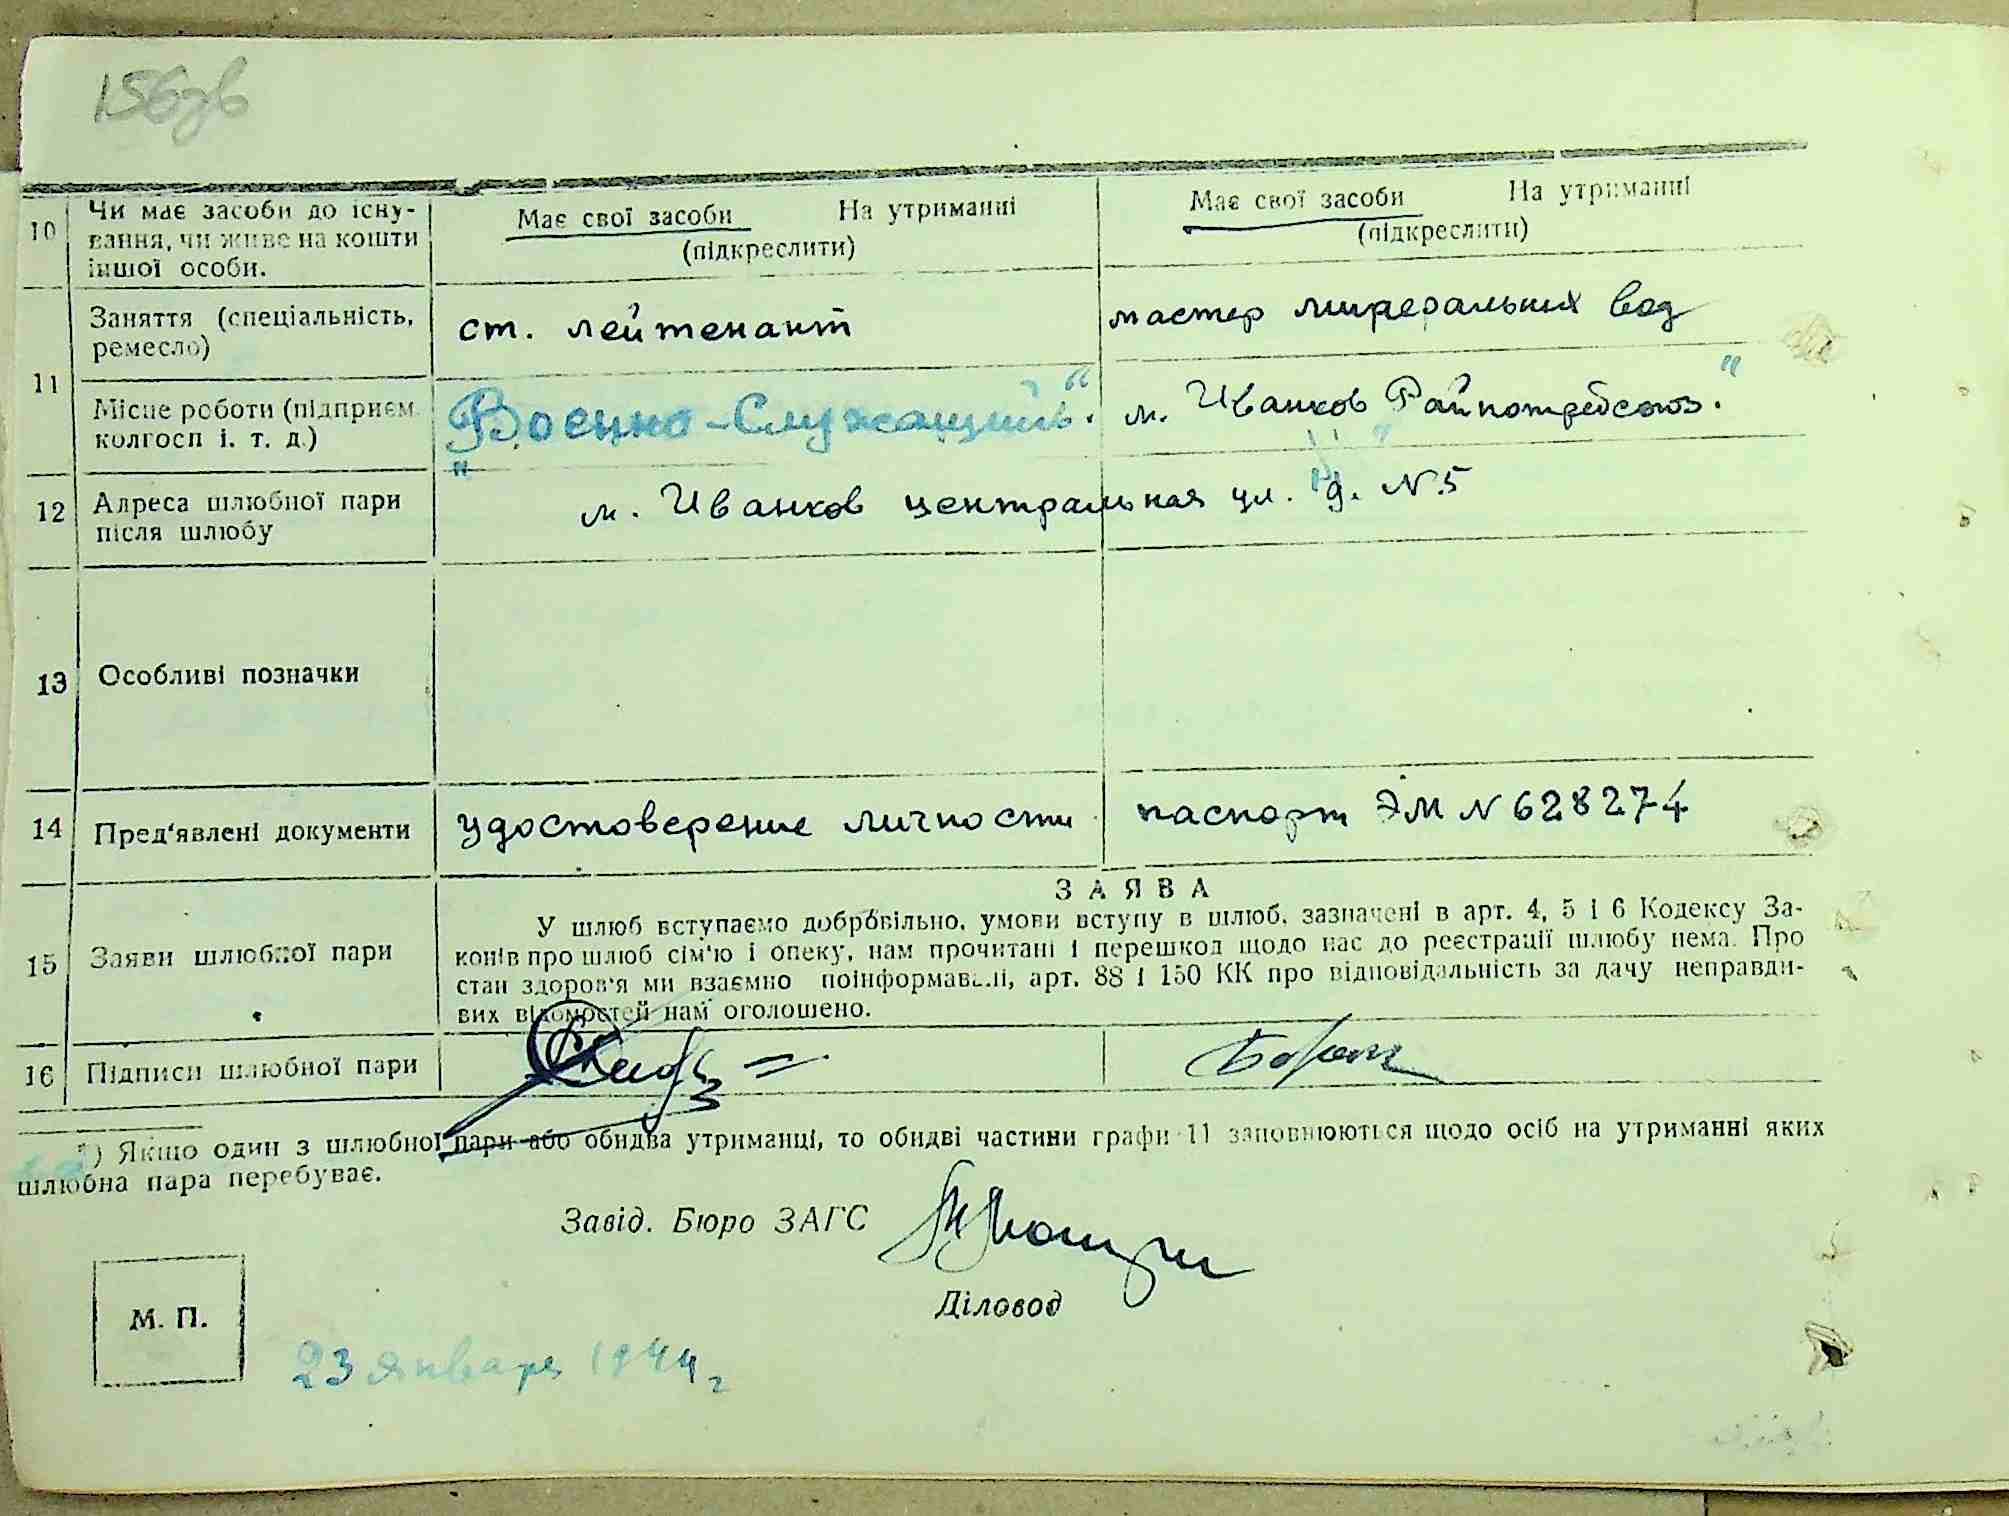 156зв
10 Чи має засоби до існу-
вання, чи живе на кошти
іншої особи.
Має свої засоби На утриманні
(підкреслити)
Має свої засоби На утриманні
(підкреслити)
11 Заняття (спеціальність,
ремесло)
ст. лейтенант
мастер минеральных вод
Місце роботи (підприєм.
колгосп і. т. д.)
"Военно-Служащий".
м. Иванков "Райпотребсоюз."
12 Адреса шлюбної пари
після шлюбу
м. Иванков центральная ул. д. №5
13 Особливі позначки
14 Пред'явлені документи
удостоверение личности
паспорт ЭМ N 628274
15 Заяви шлюбної пари
ЗАЯВА
У шлюб вступаємо добровільно, умови вступу в шлюб, зазначені в арт. 4, 5 і 6 Кодексу За-
конів про шлюб сім'ю і опеку, нам прочитані і перешкод щодо нас до реєстрації шлюбу нема. Про
стан здоров'я ми взаємно поінформовалі, арт. 88 і 150 КК про відповідальність за дачу неправди-
вих відомостей нам оголошено.
16 Підписи шлюбної пари
*) Якщо один з шлюбної пари або обидва утриманці, то обидві частини графи 11 заповнюються щодо осіб на утриманні яких
шлюбна пара перебуває.
Завід. Бюро ЗАГС
Діловод
М. П.
23 января 1944 г